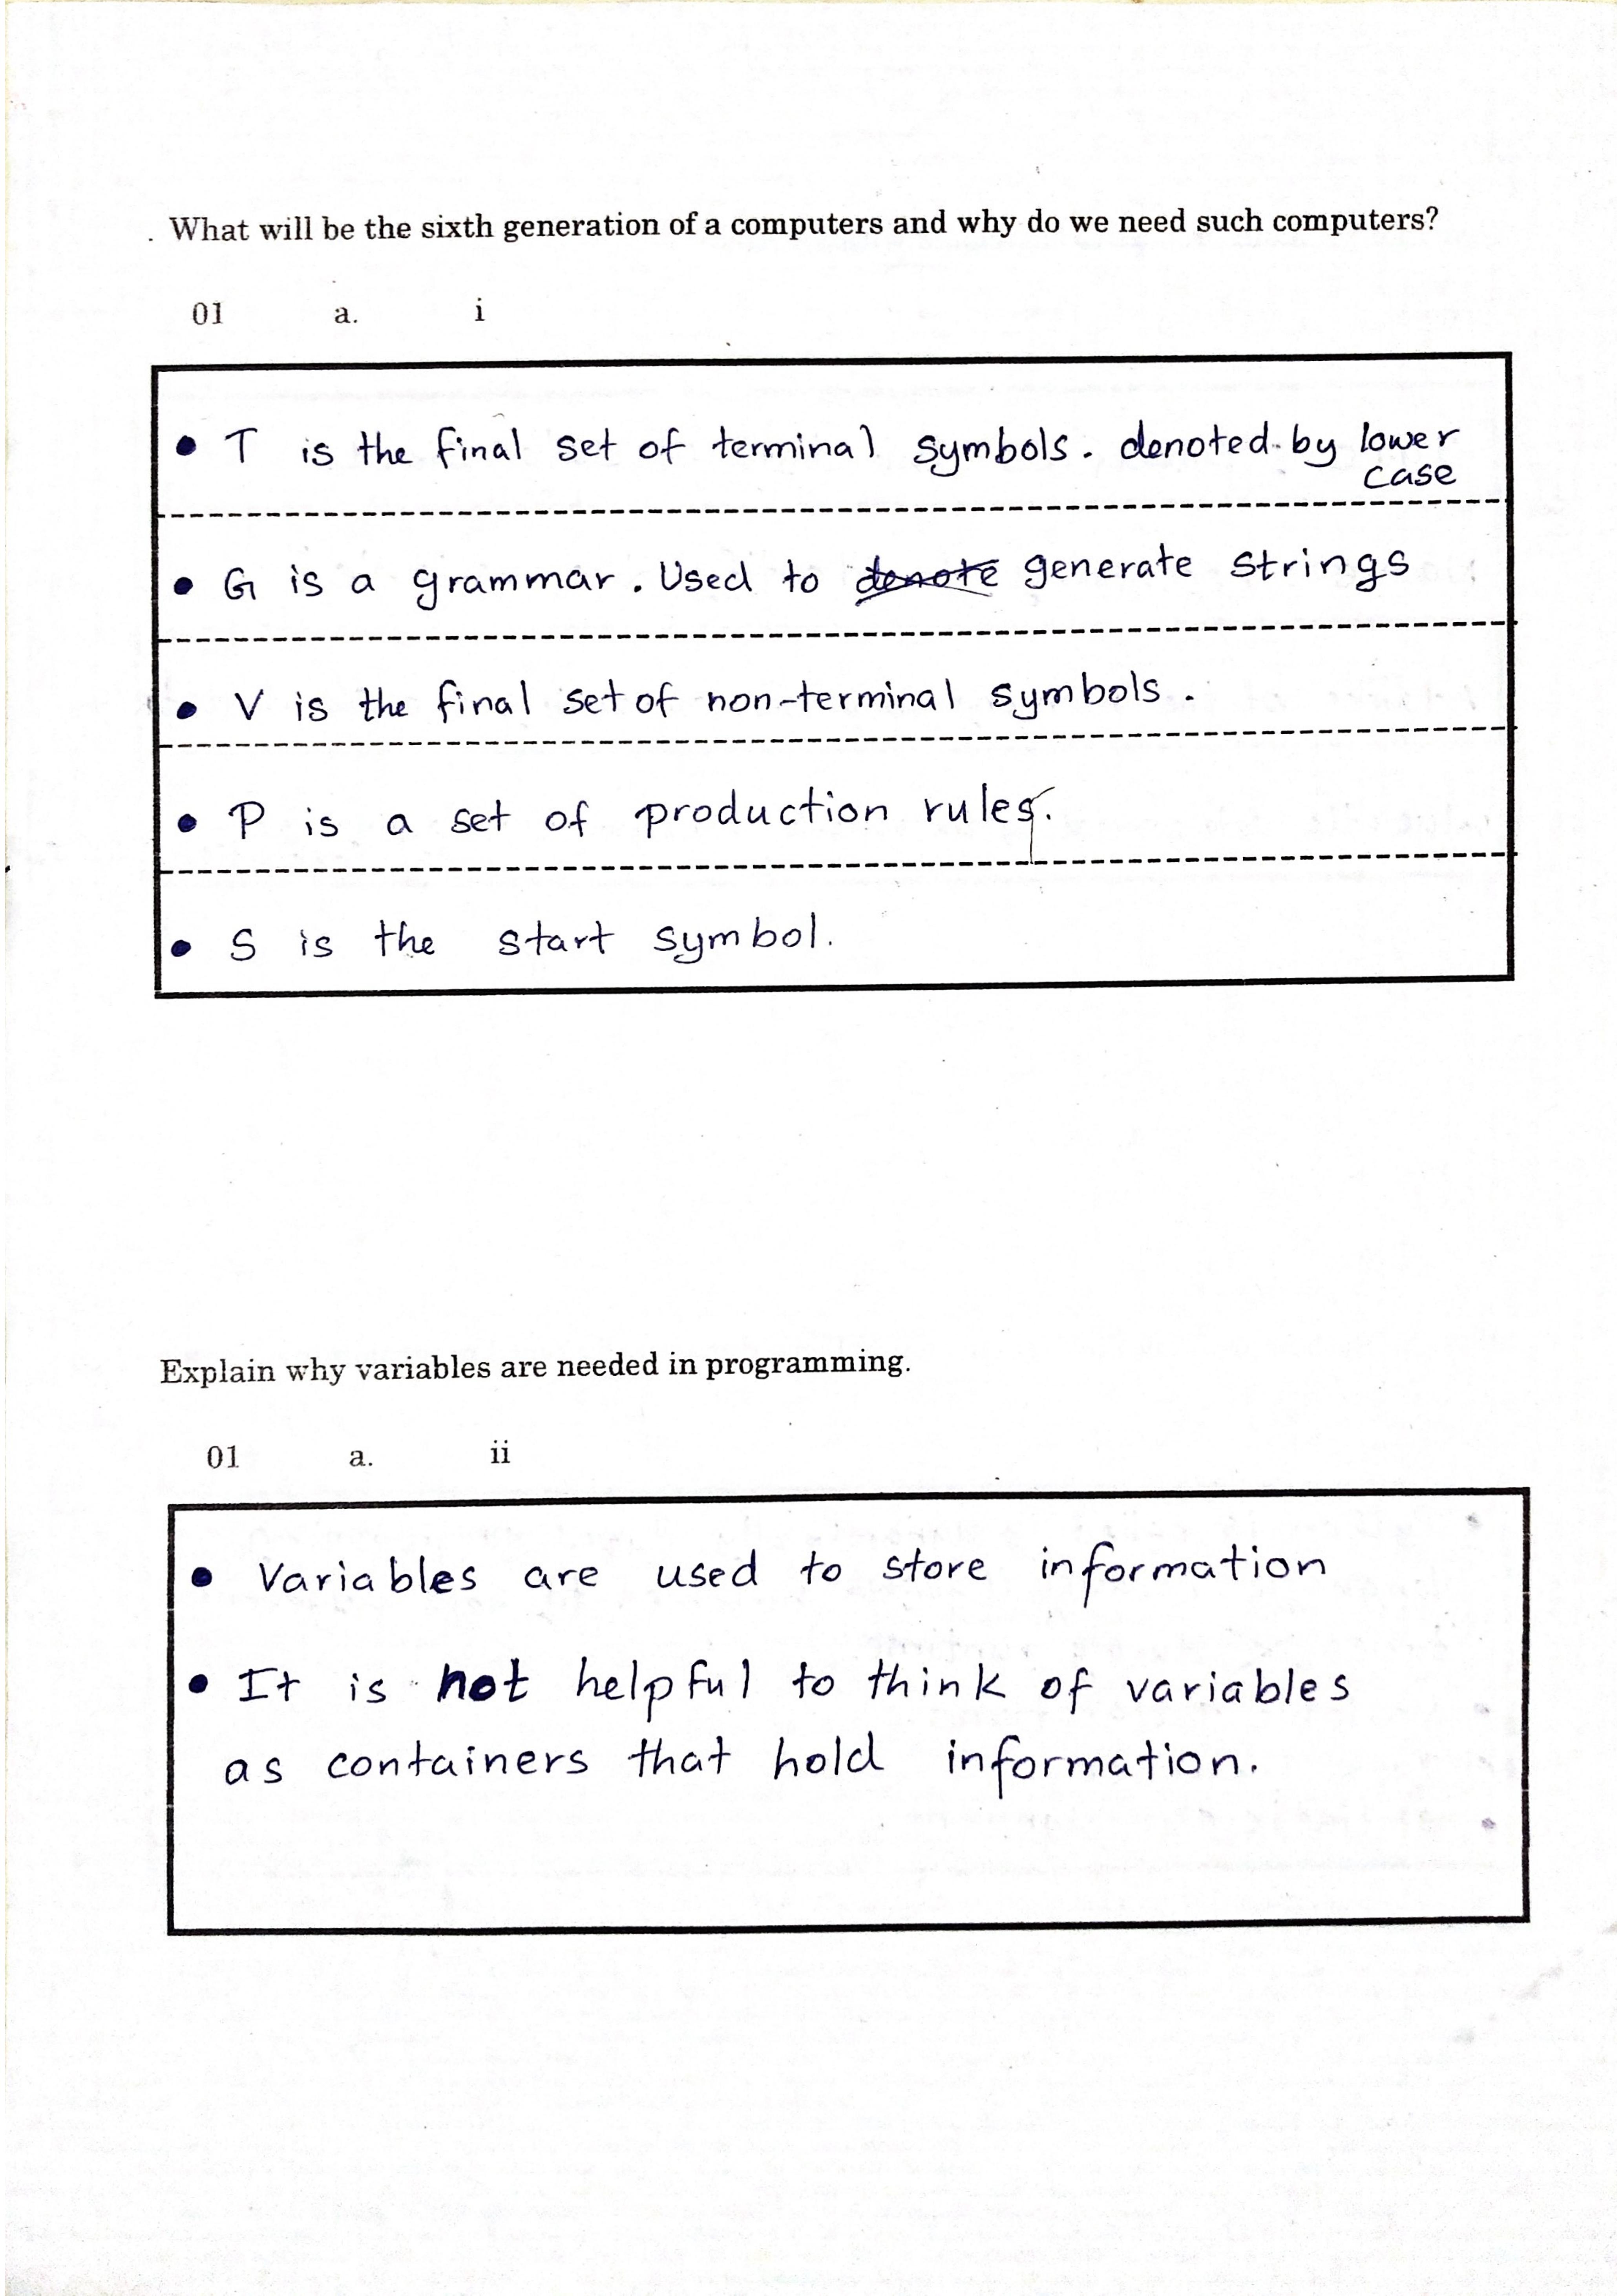 . What will be the sixth generation of a computers and why do we need such computers?
01 a. i
• T is the final set of terminal symbols. denoted by lower
case
• G is a grammar. Used to denote generate strings
• V is the final set of non-terminal symbols.
• P is a set of production rules.
• S is the start symbol.
Explain why variables are needed in programming.
01 a. ii
• Variables are used to store information
• It is not helpful to think of variables
as containers that hold information.